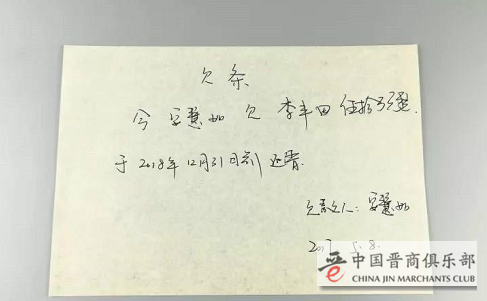 欠条
今 安慧如 欠 李丰田 伍拾万整.
于 2018年12月31日前 还清.
欠款人: 安慧如
5.8.
晋 中国晋商俱乐部
CHINA JIN MERCHANTS CLUB